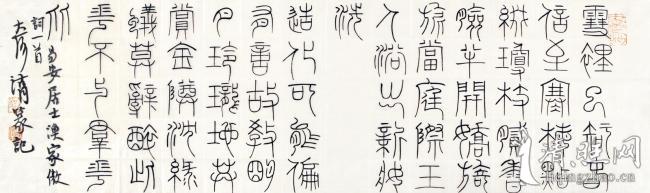 雪裡已知春
信至寒楳點
綴瓊枝膩香
臉半開嬌旖
旎當庭際玉
人浴出新妝
洗
造化可能偏
有意故教明
月玲瓏地共
賞金尊沈綠
蟻莫辭醉此
花不与羣花
比
詞首易安居士漁家傲
篆記